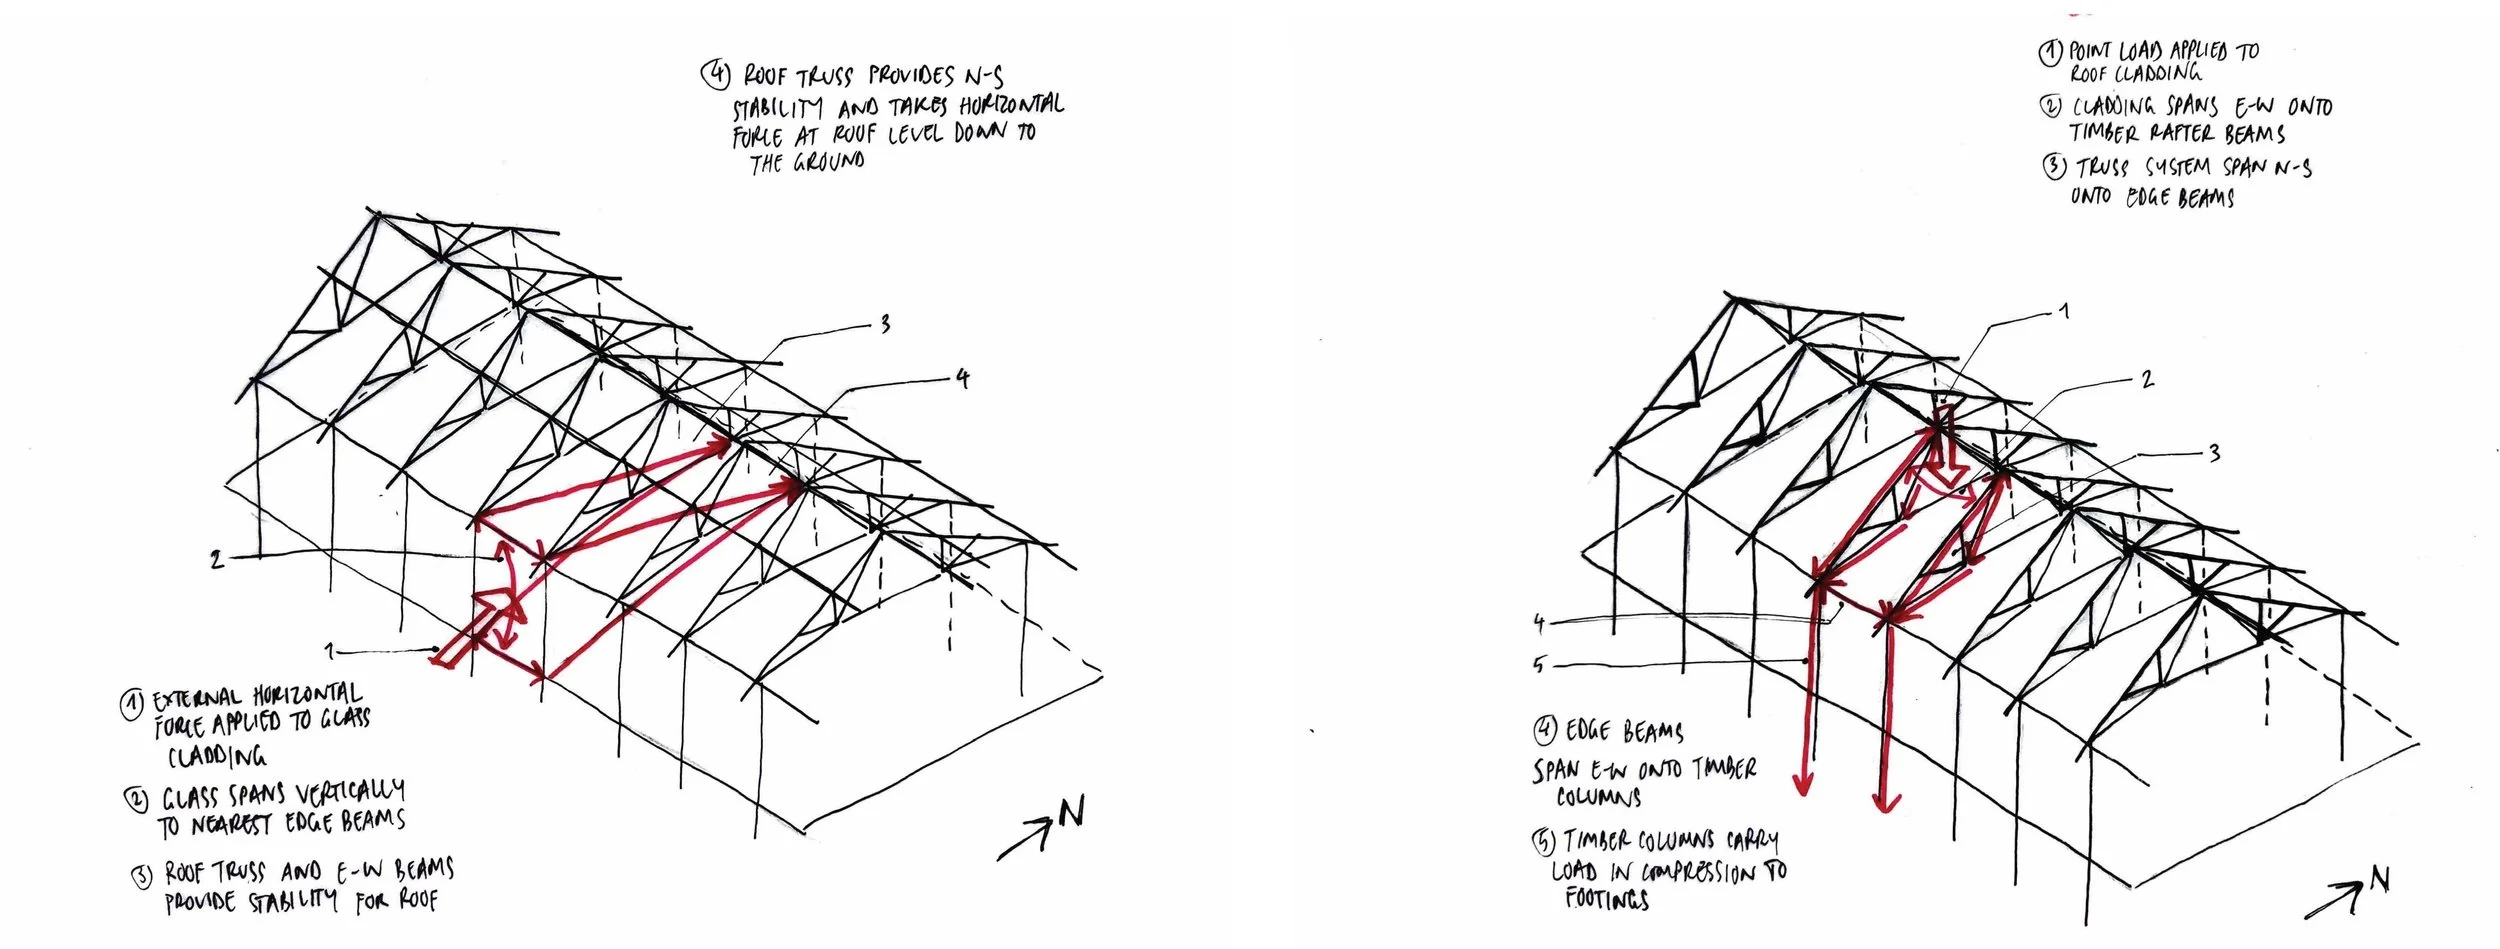 ④ ROOF TRUSS PROVIDES N-S
STABILITY AND TAKES HORIZONTAL
FORCE AT ROOF LEVEL DOWN TO
THE GROUND
3
4
2
1
① EXTERNAL HORIZONTAL
FORCE APPLIED TO GLASS
CLADDING
② GLASS SPANS VERTICALLY
TO NEAREST EDGE BEAMS
③ ROOF TRUSS AND E-W BEAMS
PROVIDE STABILITY FOR ROOF
N
① POINT LOAD APPLIED TO
ROOF CLADDING
② CLADDING SPANS E-W ONTO
TIMBER RAFTER BEAMS
③ TRUSS SYSTEM SPAN N-S
ONTO EDGE BEAMS
1
2
3
4
5
④ EDGE BEAMS
SPAN E-W ONTO TIMBER
COLUMNS
⑤ TIMBER COLUMNS CARRY
LOAD IN COMPRESSION TO
FOOTINGS
N